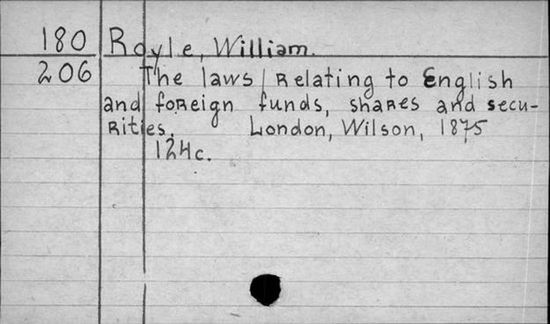 180 Royle, William.
206 The laws relating to English
and foreign funds, shares and secu-
rities. London, Wilson, 1875
124c.